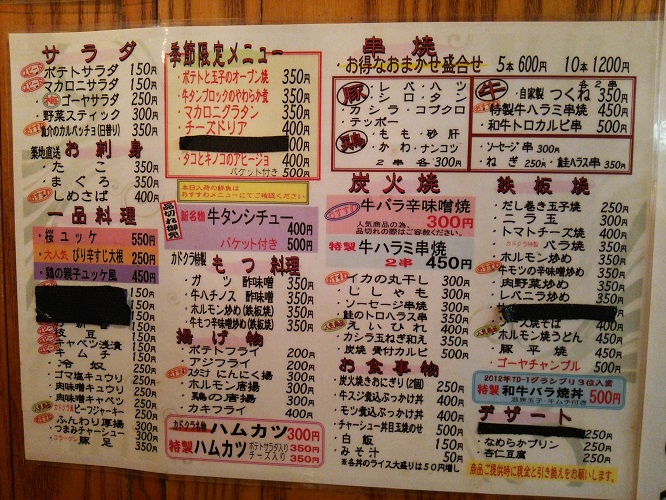 サラダ
ポテトサラダ 150円
マカロニサラダ 150円
ゴーヤサラダ 350円
野菜スティック 300円
魚介のカルパッチョ(日替り) 350円
築地直送 お刺身
たこ 350円
まぐろ 350円
しめさば 350円
一品料理
・桜ユッケ 550円
・大人気 ぴり辛すじ大根 250円
・鶏の親子ユッケ風 450円
枝豆
キャベツ浅漬 150円
キムチ 150円
冷奴 250円
ゴマ塩キュウリ 200円
肉味噌キュウリ 250円
肉味噌キャベツ 250円
ビーフジャーキー 350円
ふんわり厚揚 350円
つまみチャーシュー 300円
コラーゲン 豚足 350円
季節限定メニュー
・ポテトと玉子のオーブン焼 350円
・牛タンブロックのやわらか煮 350円
・マカロニグラタン 350円
・チーズドリア 400円
400円
・タコとキノコのアヒージョ 400円
バケット付き 500円
本日入荷の鮮魚は
おすすめメニューにてご確認ください
品切れ御免
新名物 牛タンシチュー 400円
バケット付き 500円
カドクラ特製 もつ料理
・ガツ 酢味噌 350円
・牛ハチノス 酢味噌 350円
・ホルモン炒め(鉄板焼) 350円
・牛モツ辛味噌炒め(鉄板焼) 350円
揚げ物
・ポテトフライ 200円
・アジフライ 200円
・スタミナ にんにく揚 300円
・ホルモン唐揚 350円
・鶏の唐揚 350円
・カキフライ 400円
カドクラ名物 ハムカツ 300円
特製 ハムカツ ポテトサラダ入り 350円
チーズ入り 350円
串焼
・お得なおまかせ盛合せ 5本600円 10本1200円
豚 ・レバ・ハツ
・シロ・タン
・カシラ・コブクロ
・テッポー
鶏 ・もも・砂肝
・かわ・ナンコツ
2串 各300円
牛 各2串
・自家製 つくね 350円
・特製牛ハラミ串焼 450円
・和牛トロカルビ串 500円
・ソーセージ串 300円
・ねぎ 250円 ・鮭ハラス串 350円
炭火焼
おすすめ 牛バラ辛味噌焼
人気商品の為、
品切れの際はご容赦ください。
300円
特製 牛ハラミ串焼
2串 450円
・イカの丸干し 300円
・ししゃも 300円
・ソーセージ串焼 300円
・鮭のトロハラス串 350円
・えいひれ 400円
・カシラ玉ねぎ和え 350円
・炭焼 骨付カルビ 500円
お食事物
・炭火焼きおにぎり(2個) 250円
・牛スジ煮込ぶっかけ丼 400円
・モツ煮込ぶっかけ丼 400円
・チャーシュー丼目玉焼のせ 500円
・白飯 150円
・みそ汁 50円
※各丼のライス大盛りは50円増し
鉄板焼
・だし巻き玉子焼 250円
・ニラ玉 300円
・トマトチーズ焼 400円
・カドクラ特製 バラ焼 350円
・ホルモン炒め 350円
・牛モツの辛味噌炒め 350円
・肉野菜炒め 350円
・レバニラ炒め 350円
ース焼そば 400円
・ホルモン焼うどん 450円
・豚平焼 450円
・ゴーヤチャンプル 500円
2012年TD-1グランプリ3位入賞
特製 和牛バラ焼丼 500円
温泉玉子・キムチ付き
デザート
250円
・なめらかプリン 250円
・杏仁豆腐 250円
商品ご提供時に現金と引き換えをお願いします。